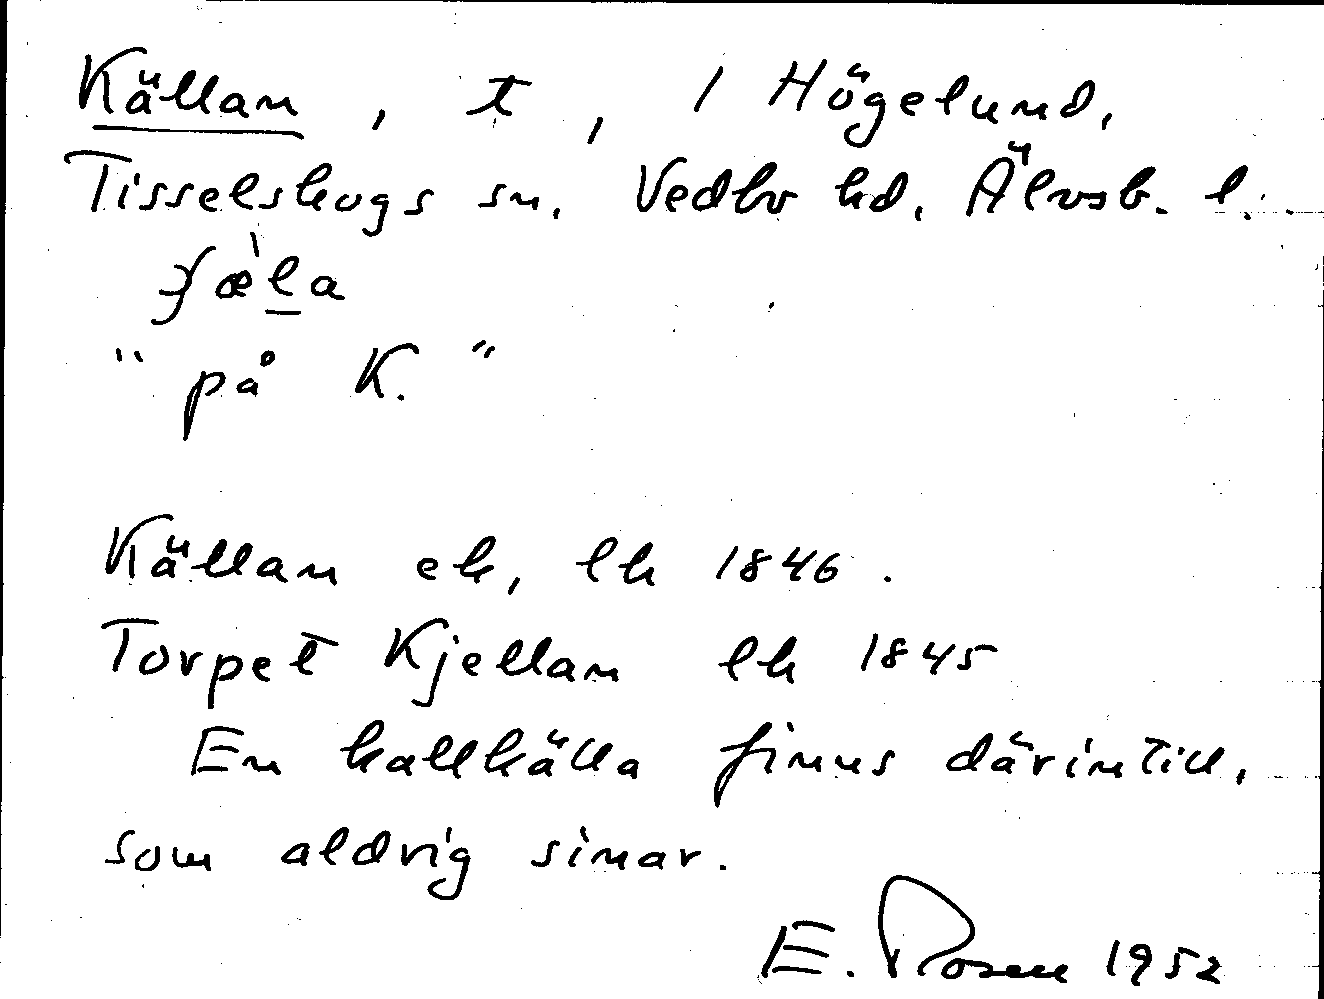 Källan, t, 1 Högelund,
Tisselskogs sn. Vedbo hd. Älvsb. l.
"på K."
Källan ek, lh 1846.
Torpet Kjellan lh 1845
En kallkälla finns därintill,
som aldrig sinar.
E. Rosen 1952